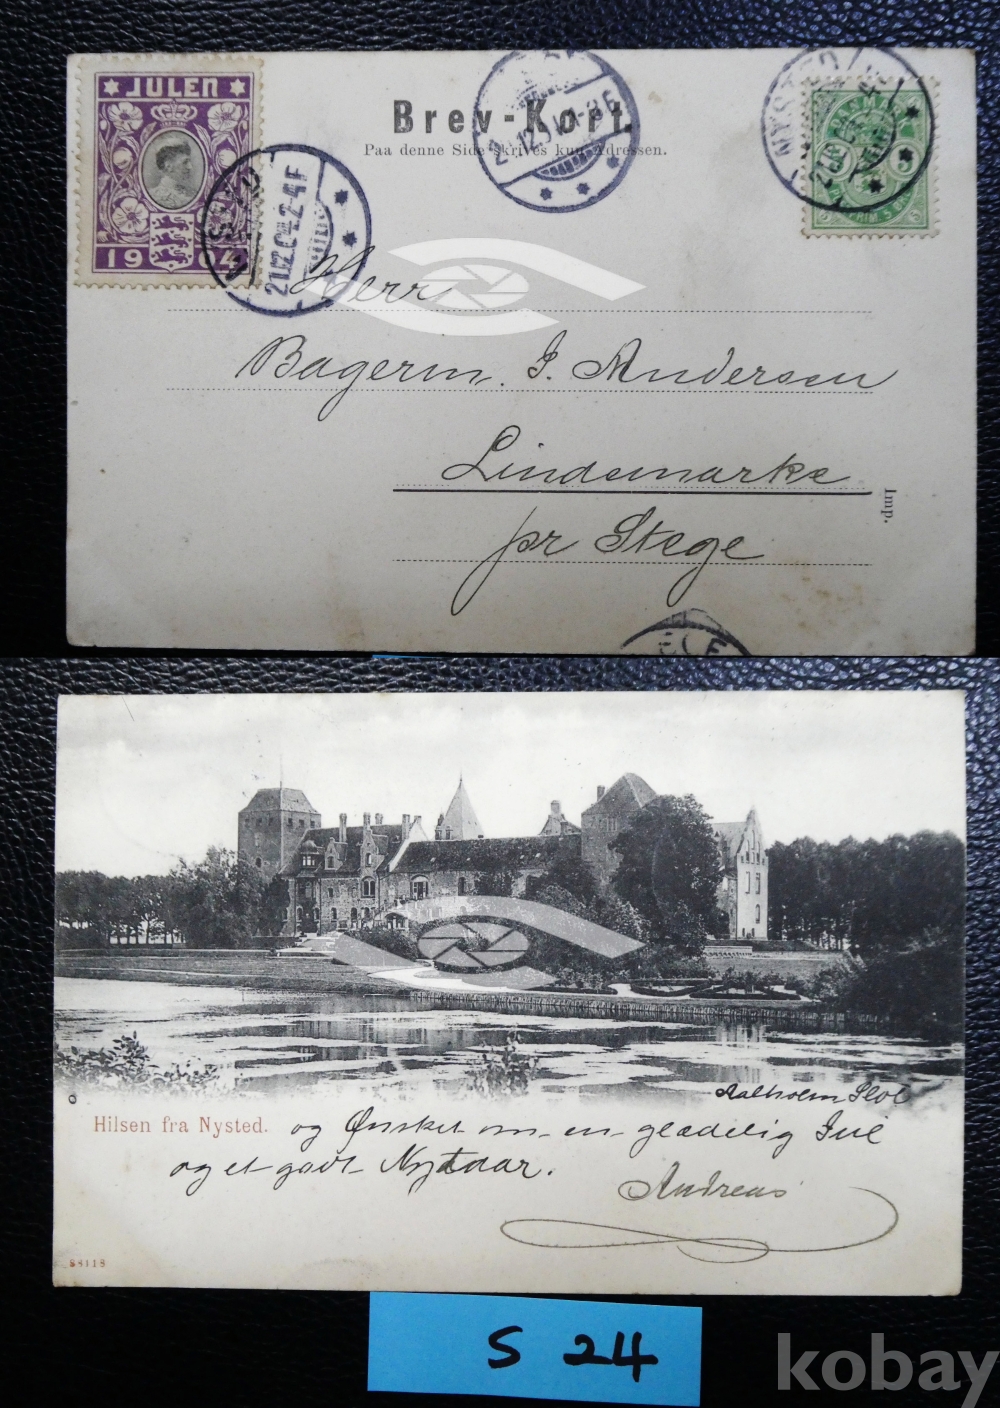 JULEN
1904
Brev-Kort.
Paa denne Side skrives kun Adressen.
NYSTED
21.12.04.2-4F
Herr
Bagerm. J. Andersen
Lindemarke
pr Stege
Imp.
Aalholm Slot
Hilsen fra Nysted.
og Ønsket om en glædelig Jul
og et godt Nytaar.
Andreas
S8118
S 24
kobay